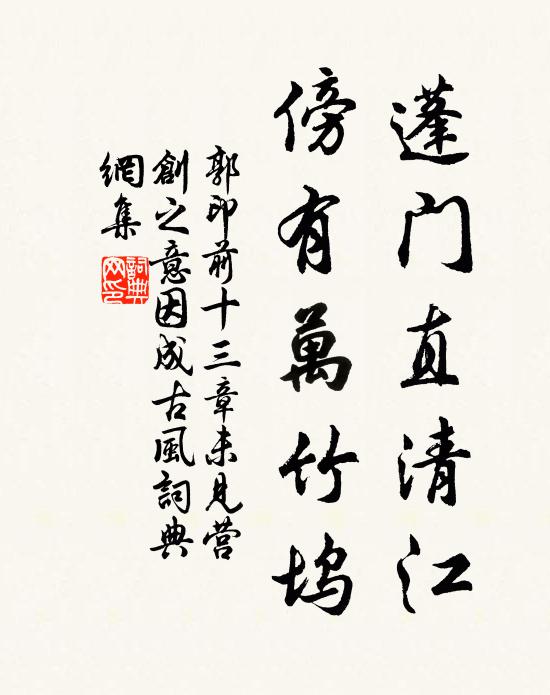 蓬门直清江
傍有萬竹塢
郭印前十三章未見营
創之意因成古風詞典
網集
詞典
网印